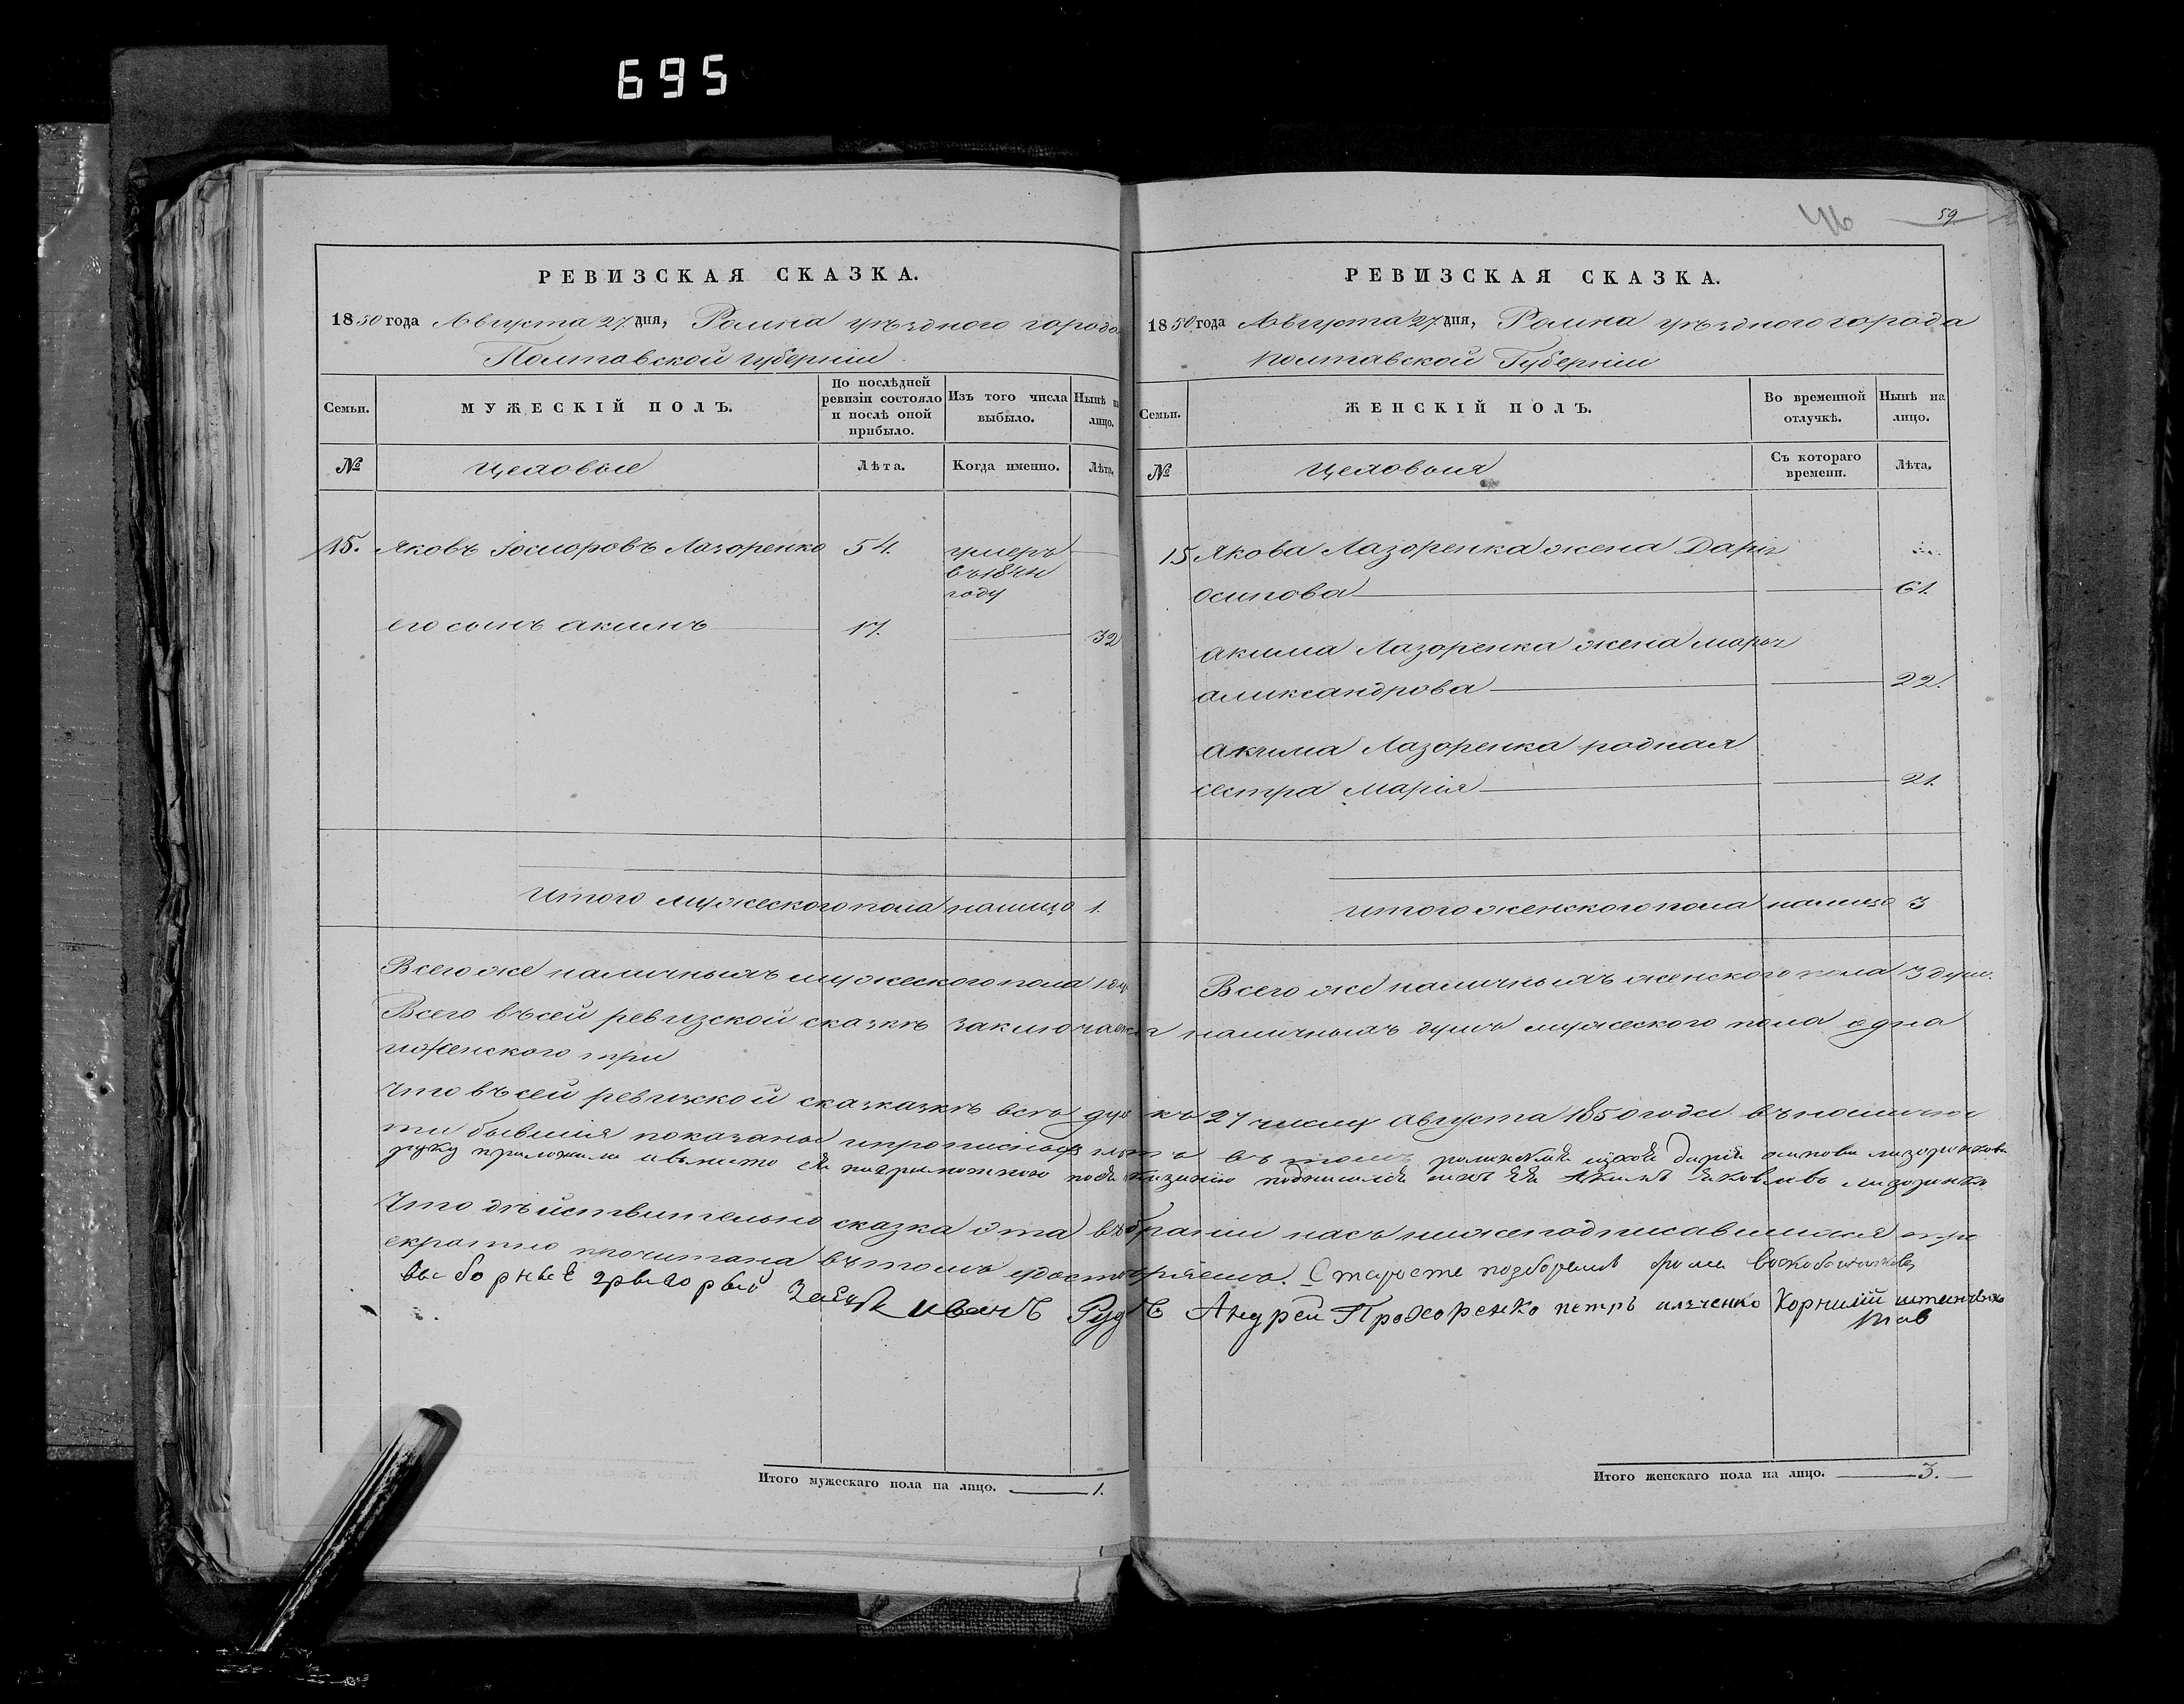 695
РЕВИЗСКАЯ СКАЗКА.
1850 года Августа 27 дня, Ромна уѣздного города
Полтавской губерніи
Семьи.
МУЖЕСКІЙ ПОЛЪ.
По послѣдней ревизіи состояло и послѣ оной прибыло.
Изъ того числа выбыло.
Нынѣ на лицо.
№
Цеховые
Лѣта.
Когда именно.
Лѣта.
15. Яковъ Лазоренко 54. умеръ
въ 1844
году
его сынъ акимъ 17. 32
Итого мужеского пола налицо 1.
Всего же наличныхъ мужеского пола 1 ду
Итого мужескаго пола на лицо. 1.
46 59
РЕВИЗСКАЯ СКАЗКА.
1850 года Августа 27 дня, Ромна уѣздного города
Полтавской Губерніи
Семьи.
ЖЕНСКІЙ ПОЛЪ.
Во временной отлучкѣ.
Нынѣ на лицо.
№
Цеховыя
Съ котораго времени.
Лѣта.
15 Якова Лазоренка жена Дарія
осипова 61.
акима Лазоренка жена
александрова 22.
акима Лазоренка родная
сестра марія 21.
Итого женского пола налицо 3
Всего же наличныхъ женского пола 3 душ.
Всего въ сей ревизской сказкѣ заключается наличныхъ душъ мужеского пола одна
и женского три
Что въ сей ревизской всѣ душ къ 27 числу Августа 1850 года въ налично
ти бывшія показаны въ томъ дарія осипова
руку приложила а вместо ея подписался сынъ ея Акимъ Яковлевъ
Что дѣйствительно сказка эта въ браніи насъ нижеподписавшихся тре
екратно прочитана въ томъ удостовѣряемъ. Староста
выборные Иванъ Рудь Андрей Прохоренко петръ Корнилій
Итого женскаго пола на лицо. 3.